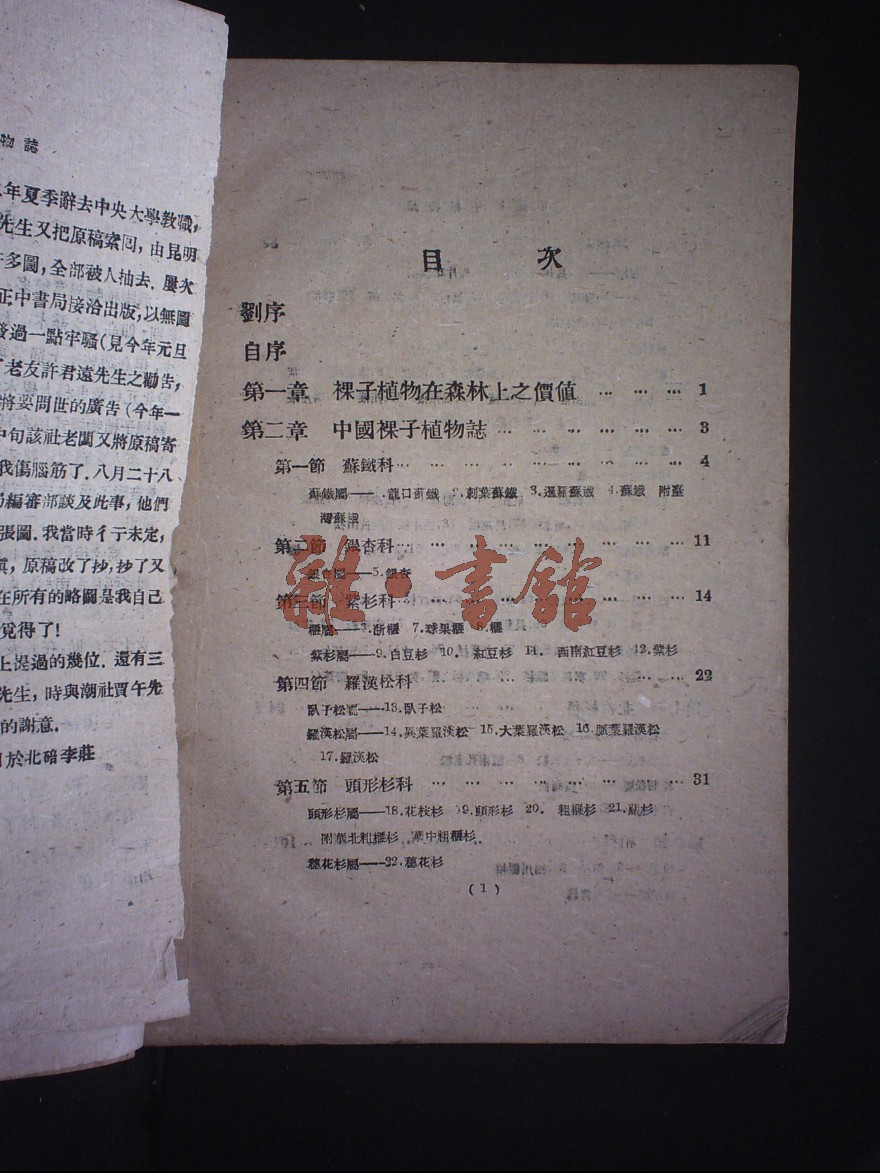 物誌
年夏季辭去中央大學教職,
先生又把原稿索回,由昆明
多圖,全部被人抽去.屢次
正中書局接洽出版,以無圖
發過一點牢騷(見今年元旦
了老友許君遠先生之勸告,
將要問世的廣告(今年一
中旬該社老闆又將原稿寄
我傷腦筋了.八月二十八
局編審部談及此事,他們
張圖.我當時彳亍未定,
原稿改了抄,抄了又
在所有的略圖是我自己
覓得了!
上提過的幾位.還有三
先生,時與潮社賈午先
的謝意.
於北碚李莊
目 次
劉序
自序
第一章 裸子植物在森林上之價值 … … … 1
第二章 中國裸子植物誌 … … … … … … 3
第一節 蘇鐵科 … … … … … … … … 4
蘇鐵屬——.龍口蘇鐵 2.刺葉蘇鐵 3.暹羅蘇鐵 4.蘇鐵 附臺
灣蘇鐵
第二節 銀杏科 … … … … … … … … 11
銀杏屬——5.銀杏
第三節 紫杉科 … … … … … … … … 14
榧屬——6.浙榧 7.球果榧 8.榧
紫杉屬——9.白豆杉 10. 紅豆杉 11. 西南紅豆杉 12.紫杉
第四節 羅漢松科 … … … … … … … 22
臥子松屬——13.臥子松
羅漢松屬——14.異葉羅漢松 15.大葉羅漢松 16.脈葉羅漢松
17.羅漢松
第五節 頭形杉科 … … … … … … … 31
頭形杉屬——18.花枝杉 19.頭形杉 20. 粗榧杉 21.杉
附華北粗榧杉 華中粗榧杉
穗花杉屬——22.穗花杉
(1)
雜·書館